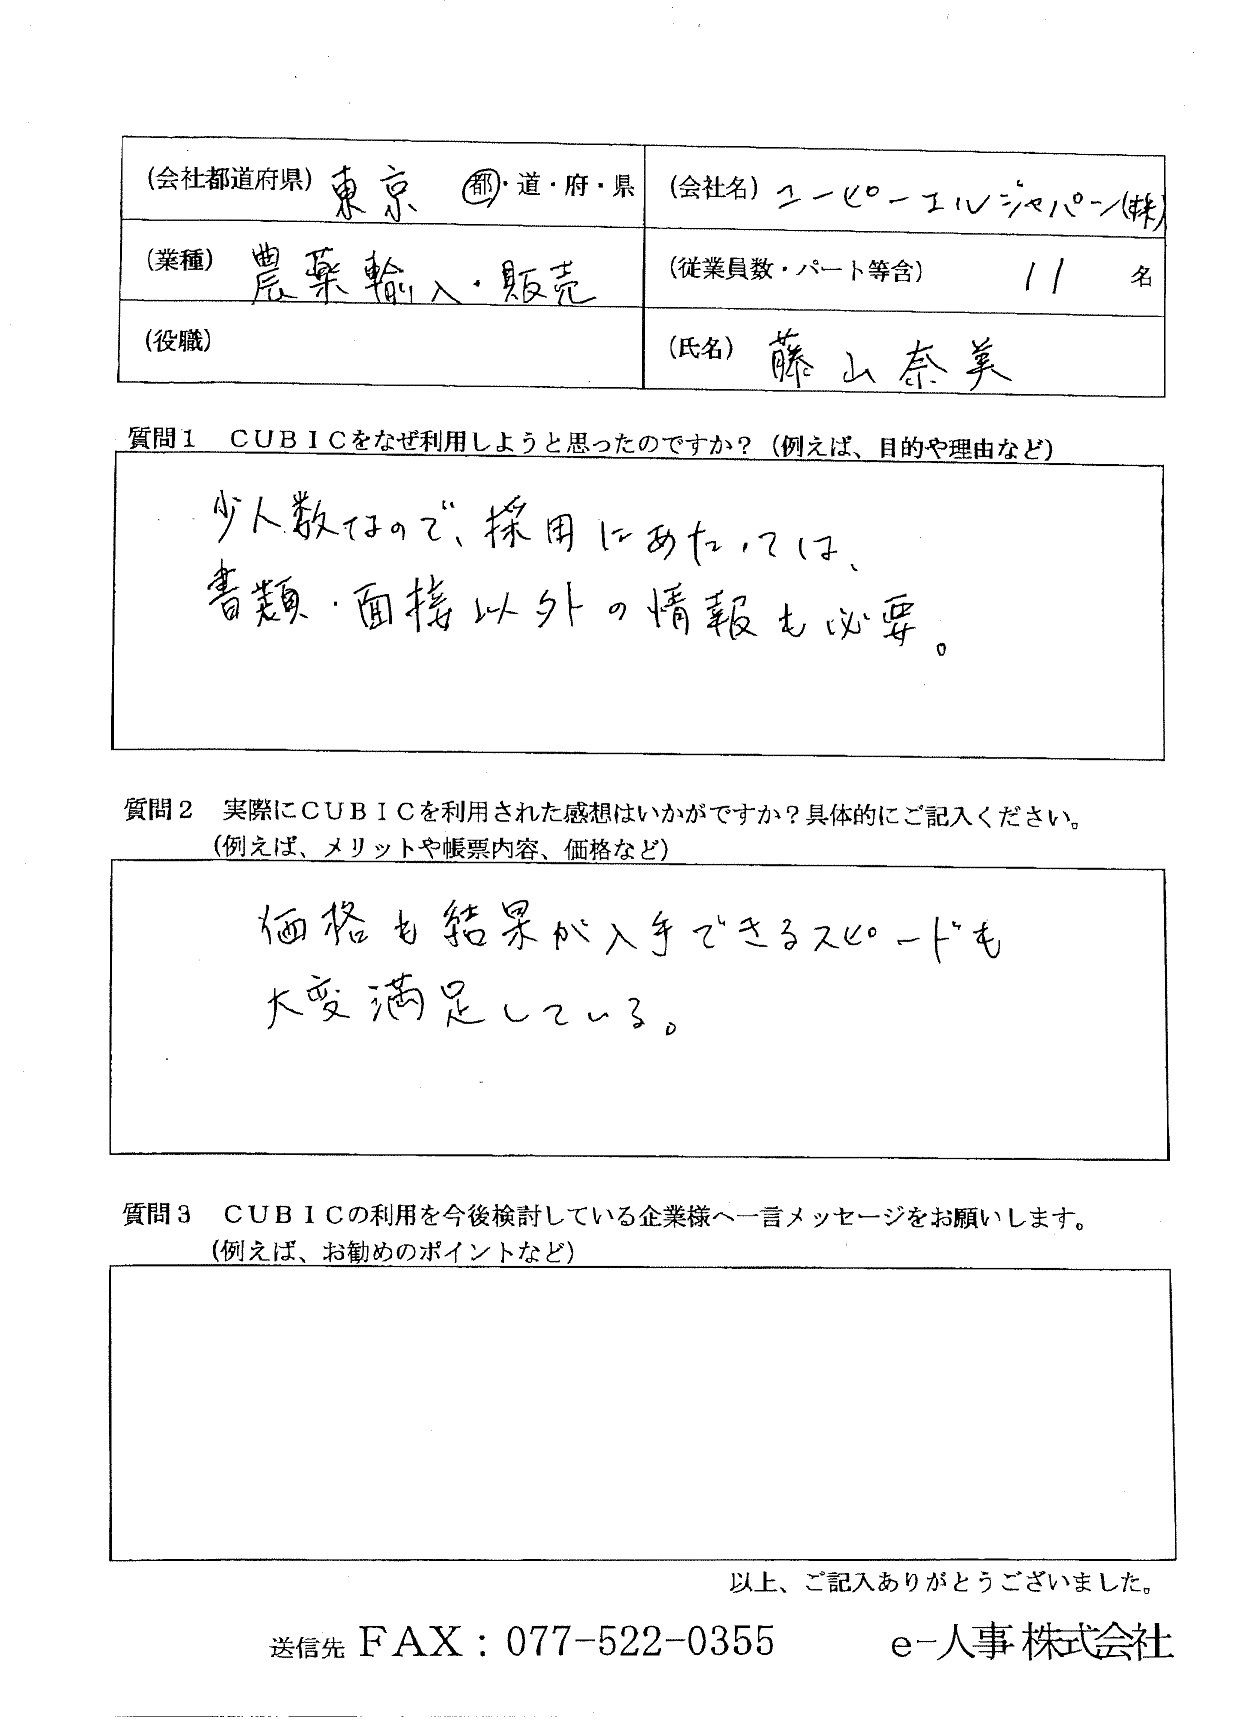 (会社都道府県) 東京 都・道・府・県
(会社名) ユーピーエルジャパン(株)
(業種) 農薬輸入・販売
(従業員数・パート等含) 11 名
(役職)
(氏名) 藤山奈美
質問1 CUBICをなぜ利用しようと思ったのですか?(例えば、目的や理由など)
少人数なので、採用にあたっては、
書類・面接以外の情報も必要。
質問2 実際にCUBICを利用された感想はいかがですか?具体的にご記入ください。
(例えば、メリットや帳票内容、価格など)
価格も結果が入手できるスピードも
大変満足している。
質問3 CUBICの利用を今後検討している企業様へ一言メッセージをお願いします。
(例えば、お勧めのポイントなど)
以上、ご記入ありがとうございました。
送信先 FAX:077-522-0355 e-人事株式会社